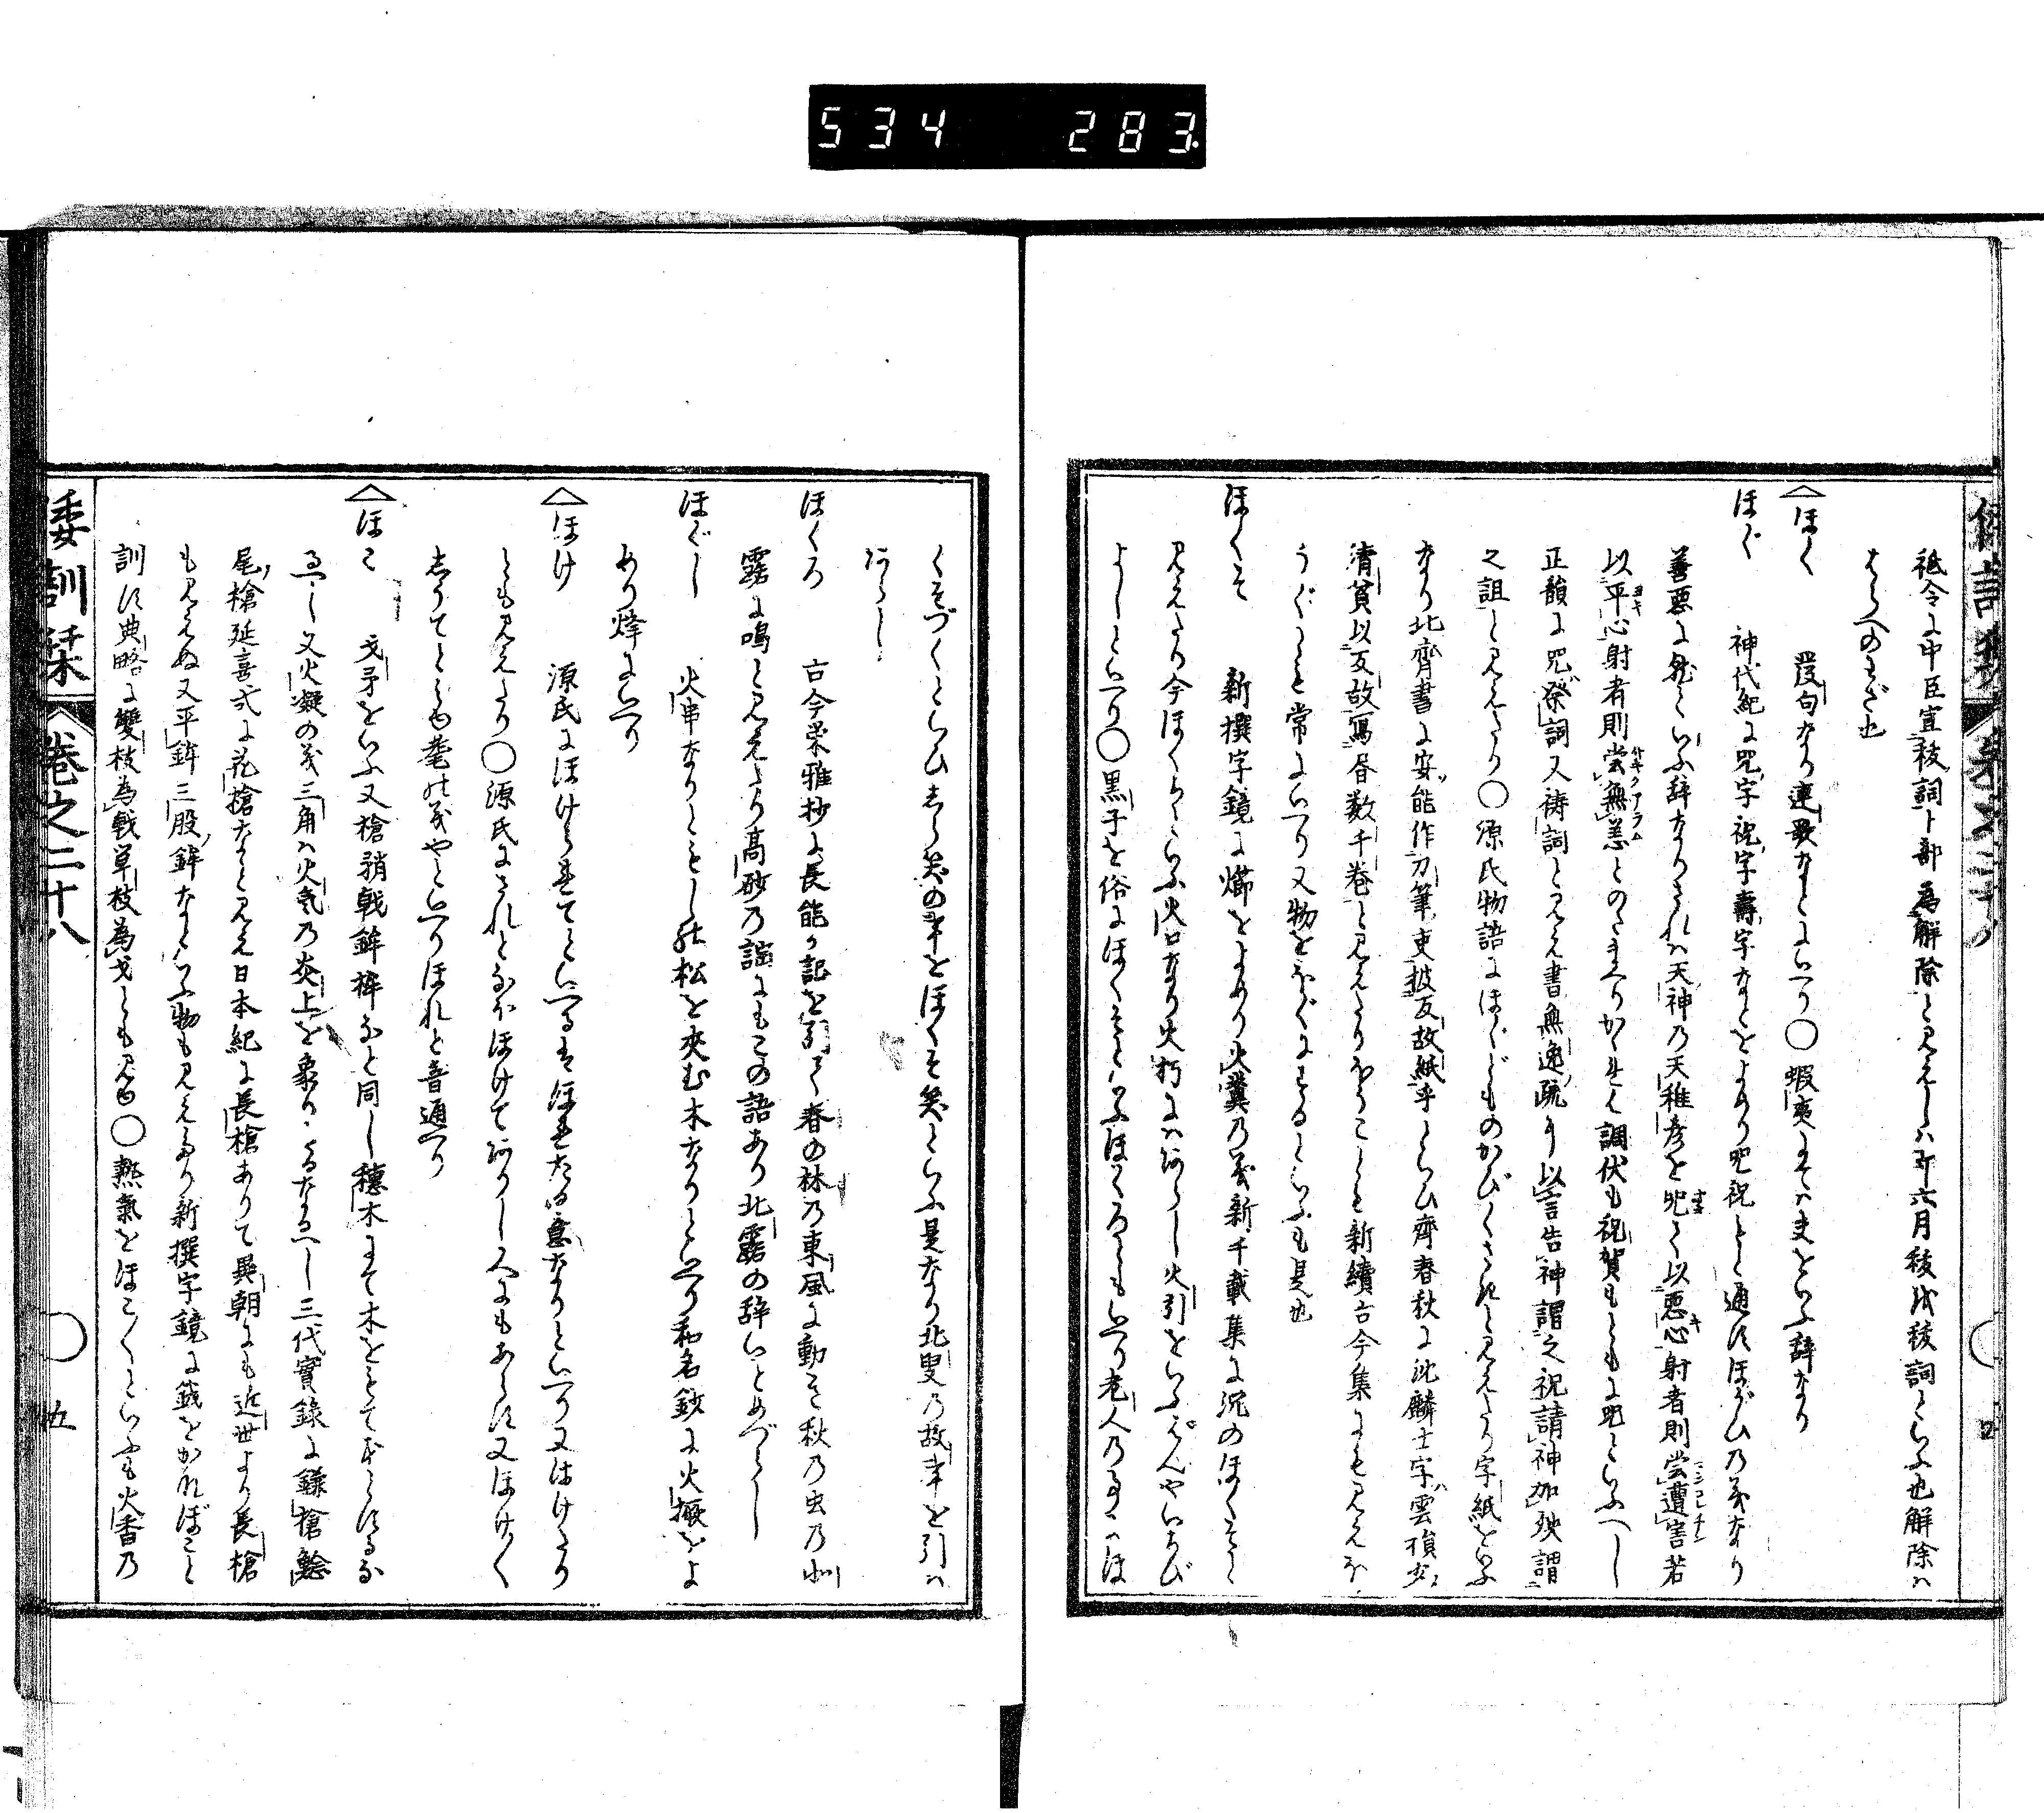 534 283
祇令に中臣宣祓詞卜部為解除と見えしハ即六月祓を祓詞といふ也解除ハ
はらへのわざ也
ほく 發句なり連歌などにいへり○蝦夷にてハ夫をいふ辞なり
ほぐ 神代紀に咒字祝字壽字などをよめり咒祝もと通ずほがひの義なり
善悪に就ていふ辞なりされハ天神の天稚彦を咒て以悪心射者則當遭害若
以平心射者則當無恙とのたまへりかゝれは調伏も祝賀もともに咒といふへし
正韻に咒祭詞又祷詞と見え書無逸疏に以言告神謂之祝請神加殃謂
之詛と見えたり○源氏物語にほぐどものかびくさきと見えたり字紙をいふ
なり北齊書に安能作刀筆吏披反故紙乎といひ齊春秋に沈麟士字雲禎少
清貧以反故寫書数千巻と見えたりほうことも新續古今集にも見えほ
うぐとも常にいへり又物をほぐにするといふも是也
ほくそ 新撰字鏡に㶽をよめり火糞の義新千載集に沉のほくそと
見えたり今ほくちといふ火口なり火朽にハあらし火引をいふぺんやいちび
よしといへり○黒子を俗にほくそといふほくろともいへり老人の事ハほ
くそづくといひあら笑の事をほくそ笑といふ是なり北叟の故事を引ハ
あらし
ほくろ 古今榮雅抄に長能か記を引て春の林の東風に動き秋の虫の北
露に鳴と見えたり高砂の謡にもこの語あり北露の辞いとめづらし
ほぐし 火串なりともしの松を夾む木なりといへり和名鈔に火橛をよ
めり烽にいへり
ほけ 源氏にほけられてといへるはほれたる意なりといへり又はけたり
とも見えたり○源氏にされとなほほけてありし人にもあらす又ほけゝく
しうてとも耄の義やといへりほれと音通へり
ほこ 戈矛をいふ又槍矟戟鉾桙なと同し穂木にて木をもて本とするな
るへし又火凝の義三角ハ火気の炎上を象りたるなるへし三代實錄に鎌槍鯰
尾槍延喜式に花槍なと見え日本紀に長槍ありて異朝にも近世より長槍
も見えぬ又平鉾三股鉾なといふ物も見えたり新撰字鏡に鉞をかなぼこと
訓ず典略に雙枝為戟単枝為戈とも見ゆ○熱氣をほこゝといふも火香の
倭訓栞 巻之二十八 五